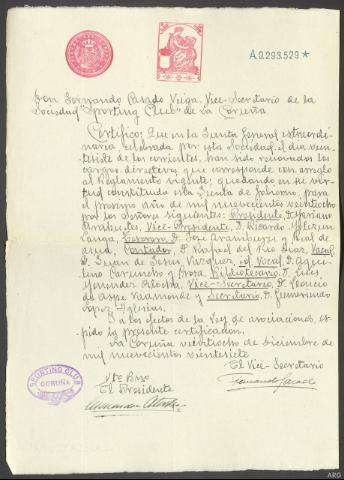 A.0.293.529*
Don Fernando Casado Veiga, Vice-Secretario de la
Sociedad "Sporting Club" de La Coruña
Certifico: Que en la Junta General extraordi-
naria, celebrada por esta Sociedad el dia vein-
tisiete de los corrientes, han sido renovados los
cargos directivos que corresponde con arreglo
al Reglamento vigente, quedando en su vir-
tud constituida esta Junta de Gobierno, para
el proximo año de mil novecientos veintiocho
por los Señores siguientes: Presidente D. Mariano
Vice-Presidente, D. Ricardo
Tesorero D. José Aramburu y
Contador, D. Rafael del Rio Diaz, Vocal
D. Juan de Jesus Vazquez, id Vocal D.
Bibliotecario D. Luis
Menendez Vice-Secretario, D. Leoncio
de Aspe Vaamonde y Secretario D. Gumersindo
Lopez Iglesias.
Y a los efectos de la Ley de asociaciones, ex-
pido la presente certificacion.
La Coruña veintiocho de Diciembre de
mil novecientos veintisiete
El Vice-Secretario
Vto Bno
El Presidente
Fernando Casado
SPORTING CLUB
CORUÑA
ARG